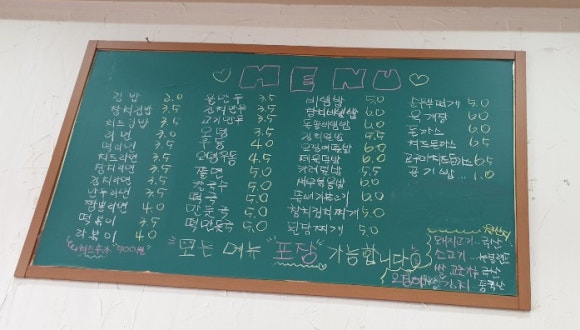 MENU
김밥 2.0
참치김밥 3.5
치즈김밥 3.5
라면 3.0
떡라면 3.5
치즈라면 3.5
참치라면 3.5
김치라면 3.5
만두라면 3.5
짬뽕라면 4.0
떡볶이 3.5
라볶이 4.0
치즈추가 500원
물만두 3.5
김치만두 3.5
고기만두 3.5
오뎅 3.5
우동 4.0
4.5
쫄면 5.0
칼국수 5.0
떡국 5.0
만두국 5.0
떡만두국 5.0
비빔밥 5.0
참치비빔밥 6.0
돌솥비빔밥 6.0
김치덮밥 5.5
오징어덮밥 6.0
제육덮밥 6.0
카레덮밥 5.5
새우볶음밥 6.0
5.0
참치김치찌개 5.0
된장찌개 5.0
순두부찌개 5.0
육개장 6.0
돈까스 6.0
치즈돈까스 6.5
고구마치즈돈까스 6.5
공기밥.. 1.0
모든 메뉴 포장 가능합니다
원산지
돼지고기.. 국산
소고기.. 뉴질랜드
쌀 고춧가루 국산
김치 중국산